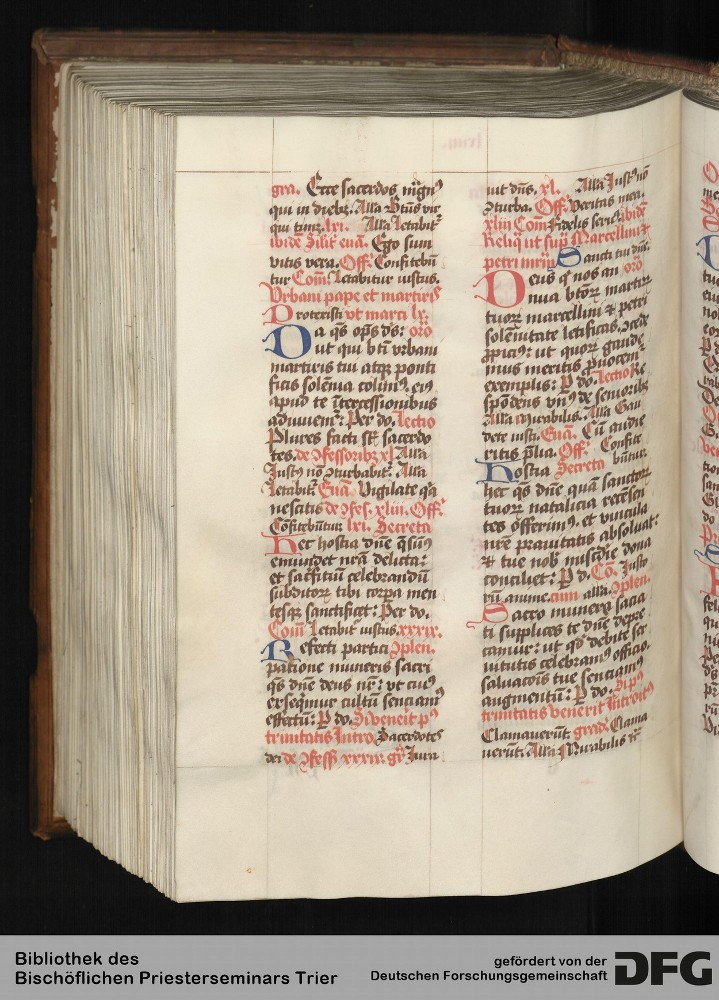 gra. Ecce sacerdos mägn⁹
qui in diebꝫ. Alla Btūs vir
qui timꝫ. lxi. Alla Letabit᷑
ibidē Silit᷑ euā. Ego sum
vitis vera. Off. Confitebū
tur Com̄: Letabitur iustus.
Vrbani pape et martiris
Protexisti vt marci lx.
Da qs ops ds: orō
ut qui bti vrbani
martiris tui atqꝫ ponti
ficis solēnia colim⁹. ei⁹
apud te ītercessionibus
adiuuem̄: Per do. Lectio
Plures facti st̄ sacerdo
tes. de ꝯfessoribꝫ xl Alla
Just⁹ nō ꝯturbabit᷑. Alla
Letabit᷑ Euā. Vigilate qa
nescitis de ꝯfes. xliii. Off.
Cōfitebūtur lxi. Secreta
Hec hostia dn̄e qs̄um⁹
emūdet nr̄a delicta:
et sacrificiū celebrandū
subditoꝝ tibi corpa men
tesqꝫ sanctificet: Per do.
Com̄ Letabit᷑ iustus. xxxix.
Refecti partici ꝯplen.
patione muneris sacri
qs dn̄e deus nr̄: vt cui⁹
exseqimur cultū senciam⁹
effectū: P do. Si venerit p⁹
trinitatis Intro. Sacerdotes
dei de ꝯfess. xxxix. gr̄ Jura
uit dn̄s. xl. Alla Just⁹ nō
ꝯturba. Off. Veritas mea.
xliii Com̄ Fidelis seru⁹. ibid
Reliq̄ ut sup̄ Marcellini ⁊
petri mr̄ip̄ Sancti tui dn̄e.
Deus q nos an orō
nua btoꝝ martir
tuoꝝ marcellini ⁊ petri
solēnitate letificas. ꝯcede
ꝓpici⁹: ut quoꝝ gaude
mus meritis ꝓuocem̄
exemplis: P do. Lectio Re
spōdens vn⁹ de senioribꝫ
Alla Mirabilis. Alla Gau
dete iusti. Euā. Cū audie
ritis p̄lia. Off. Confite
Hostia Secreta būntur
hec qs dn̄e quā sanctoꝝ
tuoꝝ natalicia recensen
tes offerim⁹. et vincula
nr̄e prauitatis absoluat:
⁊ tue nob̄ mīscdie dona
conciliet: P do. Cō. Justo
rū anime. cum alla. ꝯplen.
Sacro munere sacia
ti supplices te dn̄e depre
camur: ut qd debite ser
uitutis celebram⁹ officio.
saluacōis tue senciam⁹
augmentū: P do. Si p⁹
trinitatis venerit Introit⁹
Clamauerūt gradͤ. Clama
uerūt. Alla Mirabilis
Bibliothek des
Bischöflichen Priesterseminars Trier
gefördert von der
Deutschen Forschungsgemeinschaft
DFG